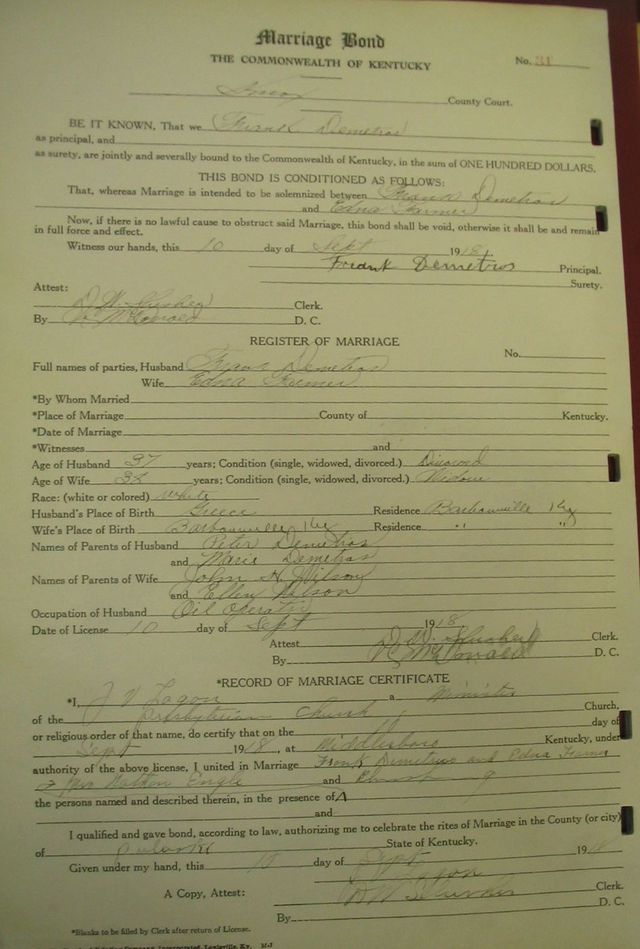 Marriage Bond
THE COMMONWEALTH OF KENTUCKY
No. 31
Knox County Court.
BE IT KNOWN, That we Frank Demetros
as principal, and
as surety, are jointly and severally bound to the Commonwealth of Kentucky, in the sum of ONE HUNDRED DOLLARS.
THIS BOND IS CONDITIONED AS FOLLOWS:
That, whereas Marriage is intended to be solemnized between Frank Demetros
and Edna Farmer
Now, if there is no lawful cause to obstruct said Marriage, this bond shall be void, otherwise it shall be and remain
in full force and effect.
Witness our hands, this 10 day of Sept 1918.
Frank Demetros Principal.
Surety.
Attest:
D. W. Slusher Clerk.
By McDonald D. C.
REGISTER OF MARRIAGE
No.
Full names of parties, Husband Frank Demetros
Wife Edna Farmer
*By Whom Married
*Place of Marriage County of Kentucky.
*Date of Marriage
*Witnesses and
Age of Husband 37 years; Condition (single, widowed, divorced.) Divorced
Age of Wife years; Condition (single, widowed, divorced.) Widow
Race: (white or colored) white
Husband's Place of Birth Greece Residence Barbourville Ky
Wife's Place of Birth Barbourville, Ky Residence " "
Names of Parents of Husband Peter Demetros
and Marie Demetros
Names of Parents of Wife John H. Wilson
and Ellen Wilson
Occupation of Husband Oil Operator
Date of License 10 day of Sept 1918
Attest D. W. Slusher Clerk.
By McDonald D. C.
*RECORD OF MARRIAGE CERTIFICATE
*I, J V Logan a Minister
of the Presbyterian Church Church,
or religious order of that name, do certify that on the day of
Sept 1918, at Middlesboro Kentucky, under
authority of the above license, I united in Marriage Frank Demetros and Edna Farmer
the persons named and described therein, in the presence of
Engle and
and
I qualified and gave bond, according to law, authorizing me to celebrate the rites of Marriage in the County (or city)
of Pulaski State of Kentucky.
Given under my hand, this 10 day of Sept 1918
A Copy, Attest: D W Slusher Clerk.
By D. C.
*Blanks to be filled by Clerk after return of License.